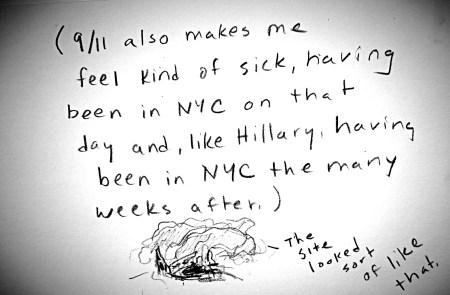 (9/11 also makes me
feel kind of sick, having
been in NYC on that
day and, like Hillary, having
been in NYC the many
weeks after.)
The
site
looked
sort
of like
that.